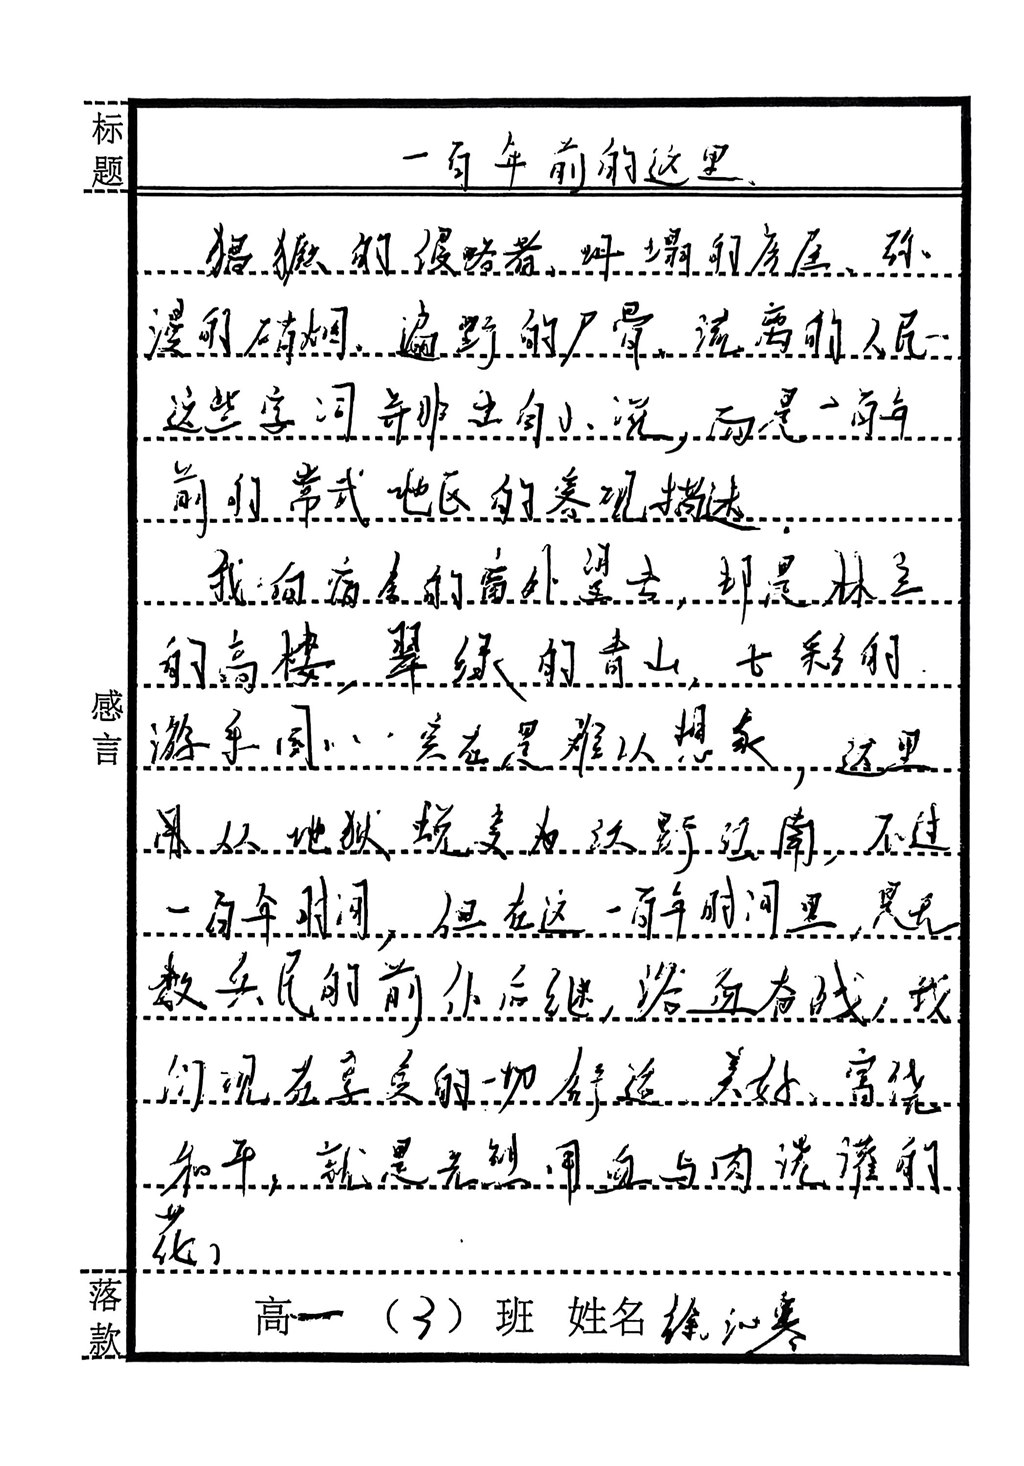 标题
一百年前的这里
猖獗的侵略者、坍塌的房屋、弥
漫的硝烟、遍野的尸骨、流离的人民…
这些字词并非出自小说，而是一百年
前的常武地区的客观描述.
我向病舍的窗外望去，却是林立
的高楼，翠绿的青山，七彩的
游乐园……实在是难以想象，这里
从地狱蜕变为沃野江南，不过
一百年时间，但在这一百年时间里，是无
数兵民的前仆后继，浴血奋战，我
们现在享受的一切舒适、美好、富饶
和平，就是先烈用血与肉浇灌的
花。
感言
落款
高一（3）班 姓名 徐沁寒